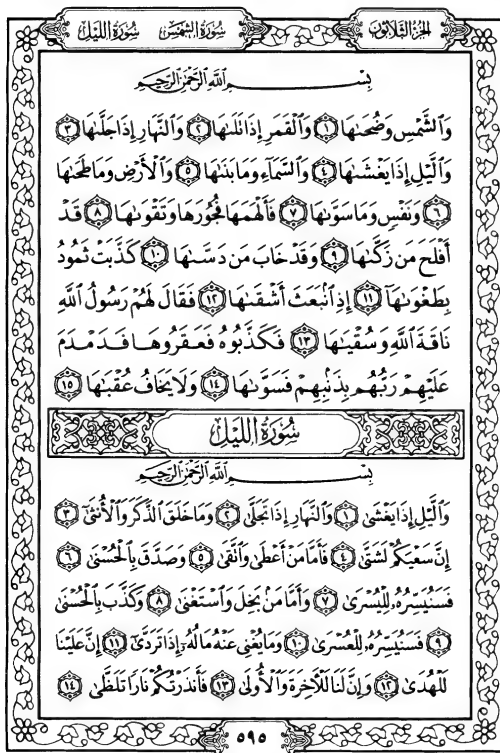 الجزء الثلاثون سورة الشمس سورة الليل
بسم الله الرحمن الرحيم
وَالشَّمْسِ وَضُحَىٰهَا ١ وَالْقَمَرِ إِذَا تَلَىٰهَا ٢ وَالنَّهَارِ إِذَا جَلَّىٰهَا ٣
وَالَّيْلِ إِذَا يَغْشَىٰهَا ٤ وَالسَّمَاءِ وَمَا بَنَىٰهَا ٥ وَالْأَرْضِ وَمَا طَحَىٰهَا
٦ وَنَفْسٍ وَمَا سَوَّىٰهَا ٧ فَأَلْهَمَهَا فُجُورَهَا وَتَقْوَىٰهَا ٨ قَدْ
أَفْلَحَ مَن زَكَّىٰهَا ٩ وَقَدْ خَابَ مَن دَسَّىٰهَا ١٠ كَذَّبَتْ ثَمُودُ
بِطَغْوَىٰهَآ ١١ إِذِ انۢبَعَثَ أَشْقَىٰهَا ١٢ فَقَالَ لَهُمْ رَسُولُ اللَّهِ
نَاقَةَ اللَّهِ وَسُقْيَىٰهَا ١٣ فَكَذَّبُوهُ فَعَقَرُوهَا فَدَمْدَمَ
عَلَيْهِمْ رَبُّهُم بِذَنۢبِهِمْ فَسَوَّىٰهَا ١٤ وَلَا يَخَافُ عُقْبَىٰهَا ١٥
سورة الليل
بسم الله الرحمن الرحيم
وَالَّيْلِ إِذَا يَغْشَىٰ ١ وَالنَّهَارِ إِذَا تَجَلَّىٰ ٢ وَمَا خَلَقَ الذَّكَرَ وَالْأُنثَىٰٓ ٣
إِنَّ سَعْيَكُمْ لَشَتَّىٰ ٤ فَأَمَّا مَنْ أَعْطَىٰ وَاتَّقَىٰ ٥ وَصَدَّقَ بِالْحُسْنَىٰ ٦
فَسَنُيَسِّرُهُۥ لِلْيُسْرَىٰ ٧ وَأَمَّا مَنۢ بَخِلَ وَاسْتَغْنَىٰ ٨ وَكَذَّبَ بِالْحُسْنَىٰ
٩ فَسَنُيَسِّرُهُۥ لِلْعُسْرَىٰ ١٠ وَمَا يُغْنِي عَنْهُ مَالُهُۥٓ إِذَا تَرَدَّىٰٓ ١١ إِنَّ عَلَيْنَا
لَلْهُدَىٰ ١٢ وَإِنَّ لَنَا لَلْآخِرَةَ وَالْأُولَىٰ ١٣ فَأَنذَرْتُكُمْ نَارًا تَلَظَّىٰ ١٤
٥٩٥